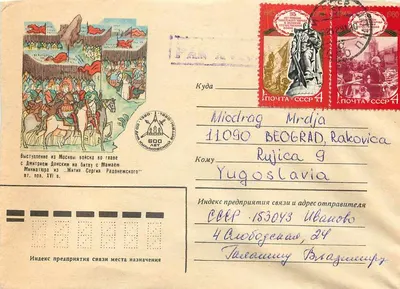 ПОЧТА СССР
ПОЧТА СССР
600 ЛЕТ
Выступление из Москвы войска во главе
с Дмитрием Донским на битву с Мамаем.
Миниатюра из "Жития Сергия Радонежского"
XVI в.
Куда
Miodrag Mrdja
11090 BEOGRAD, Rakovica
Кому
Rujica 9
Yugoslavia
Индекс предприятия связи и адрес отправителя
СССР 153043 Иваново
4 Слободская, 24
Владимиру
Индекс предприятия связи места назначения